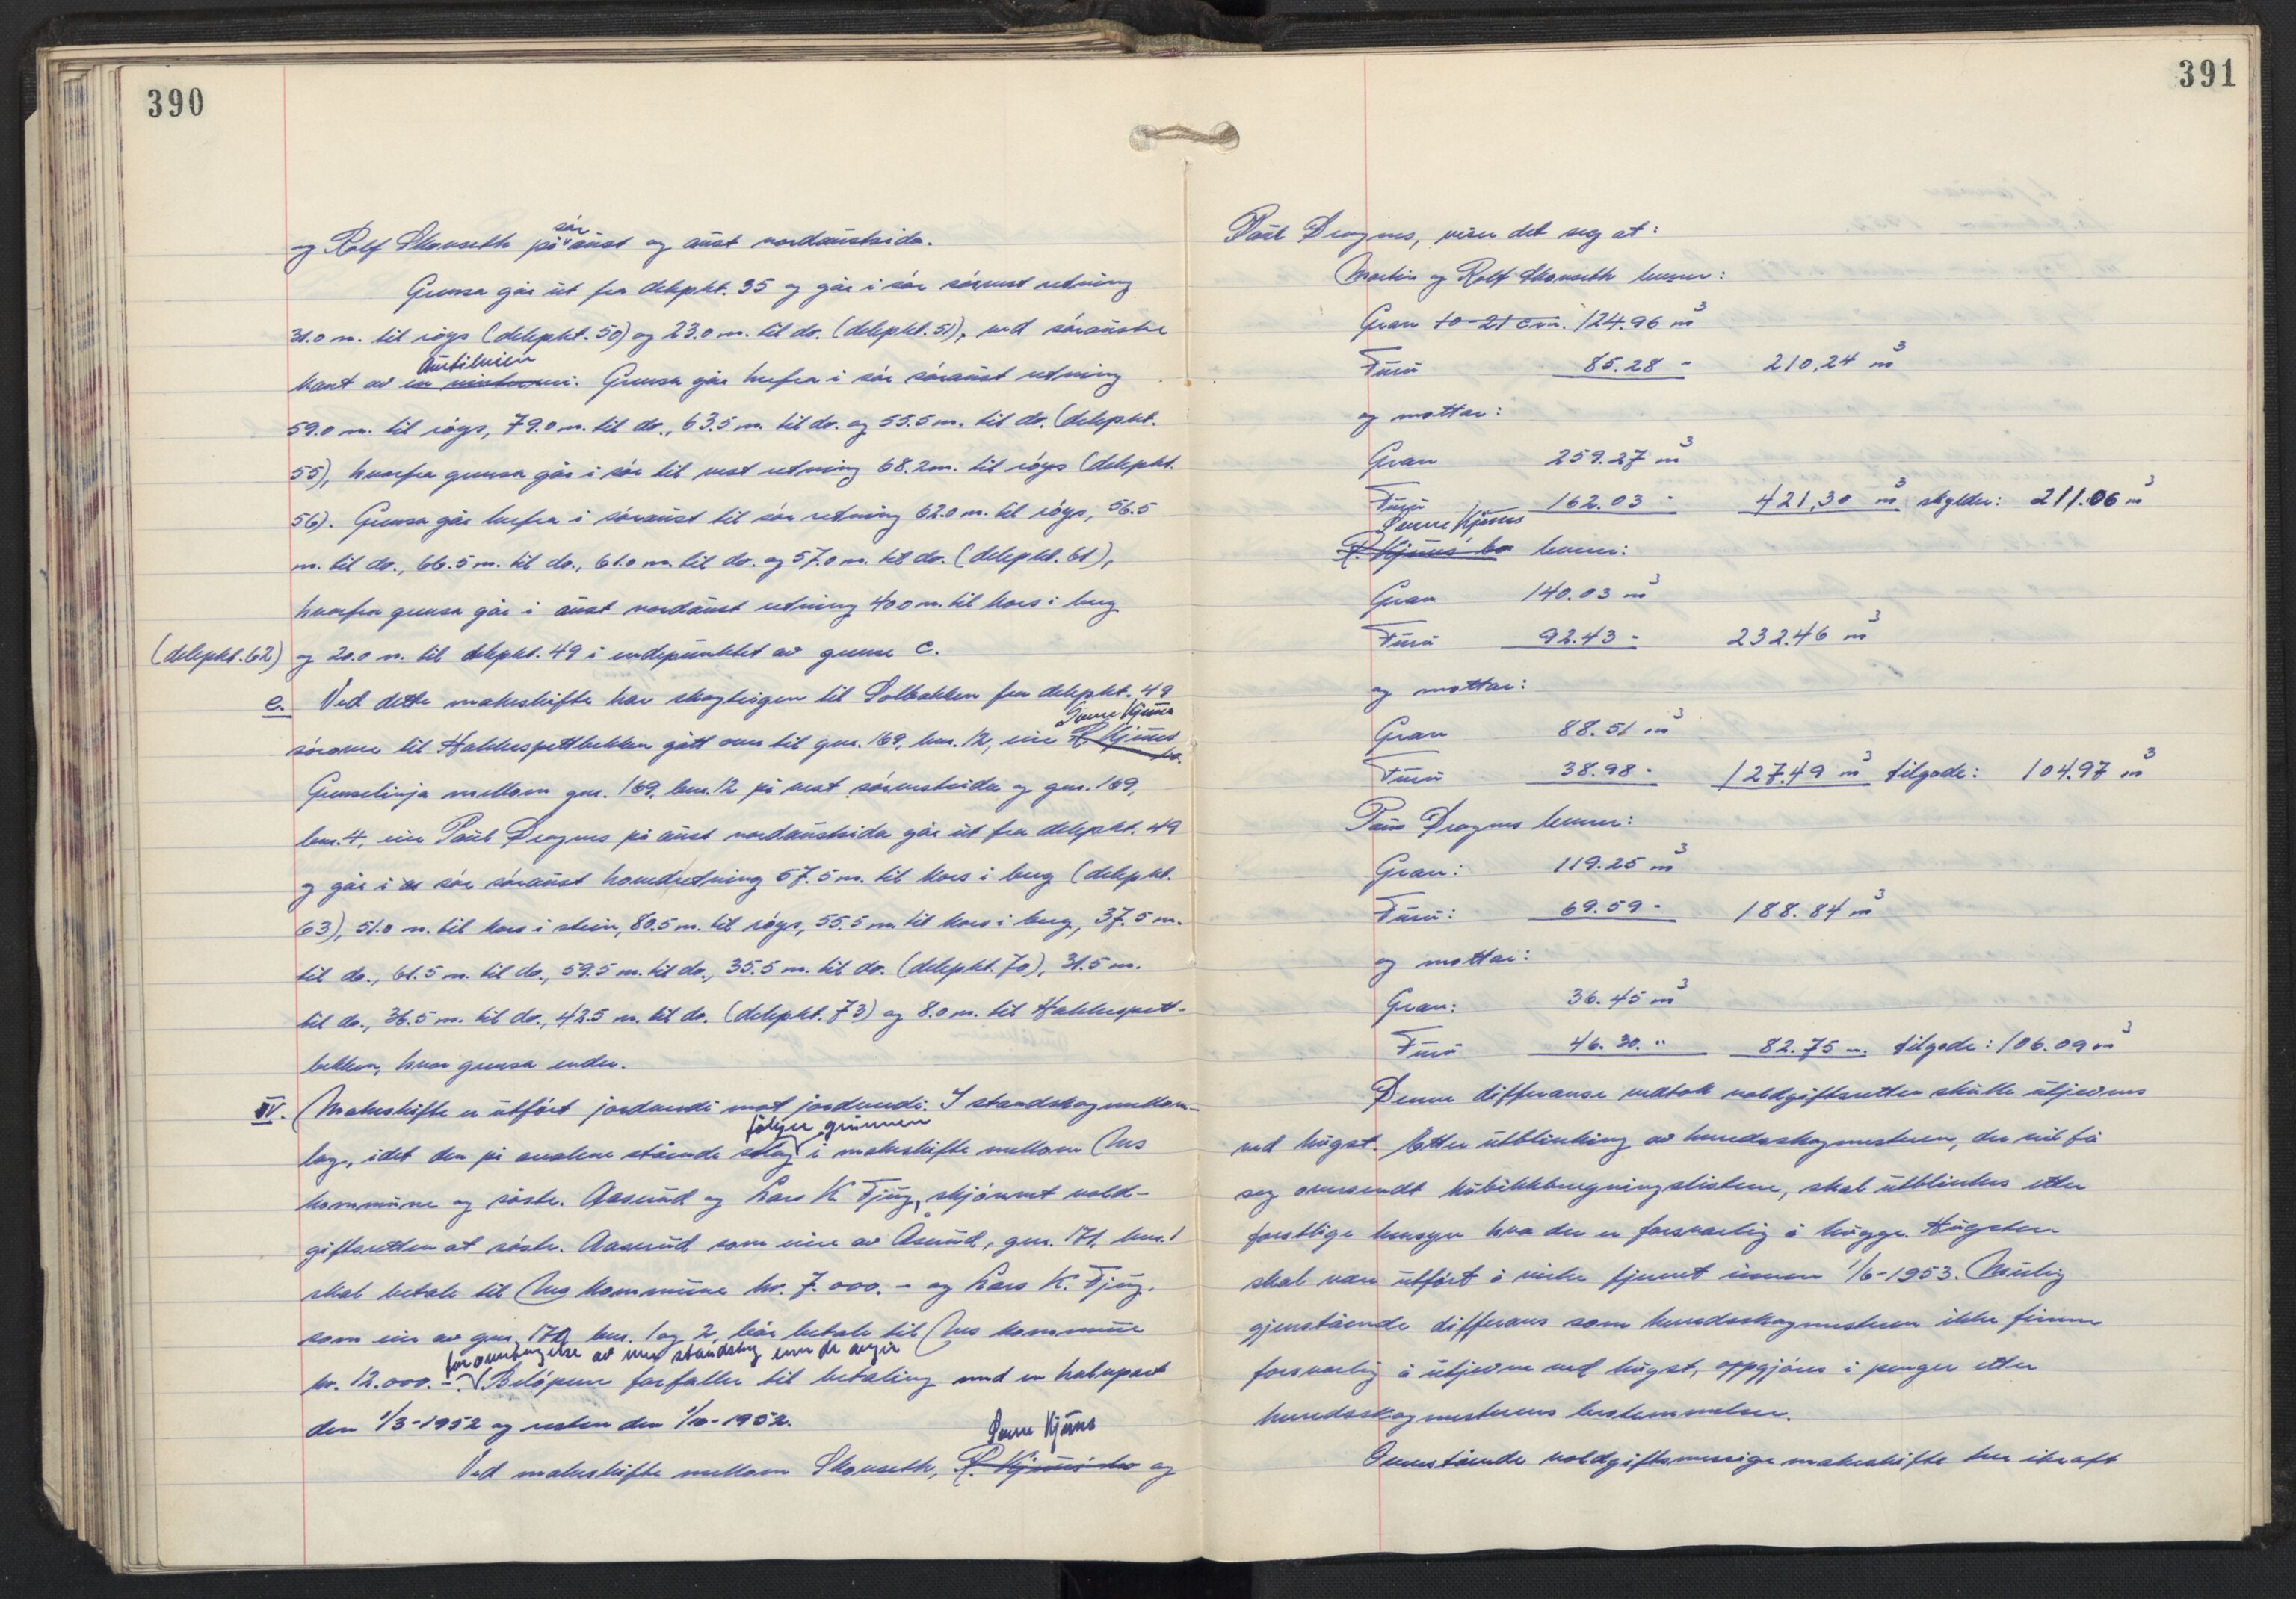 390
og Rolf Skonseth på sør aust og aust nordaustsida.
Grensa går ut fra delepkt. 35 og går i sør sørvest retning
31.0 m. til röys (delepkt. 50) og 23.0 m. til do. (delepkt. 51), ved søraustre
kant av en vintervei. Autilveien Grensa går herfra i sør søraust retning
59.0 m. til röys, 79.0 m. til do., 63.5 m. til do. og 55.5 m. til do. (delepkt.
55), hvorfra grensa går i sør til vest retning 68.2 m. til röys (delepkt.
56). Grensa går herfra i søraust til sør retning 62.0 m. til röys, 56.5
m. til do., 66.5 m. til do., 61.0 m. til do. og 57.0 m. til do. (delepkt. 61),
hvorfra grensa går i aust nordaust retning 40.0 m. til kors i berg
(delepkt. 62) og 20.0 m. til delepkt. 49 i endepunktet av grense C.
e. Ved dette makeskifte har skogteigen til Solbakken fra delepkt. 49
sörover til Hakkespettbekken gått over til gnr. 169, bnr. 12, eier R. Kjønås bo. Kjønås
Grenselinja mellom gnr. 169, bnr. 12 på vest sørvestsida og gnr. 169,
bnr. 4, eier Paul Dragnes på aust nordaustsida går ut fra delepkt. 49
og går i sør søraust hovedretning 57.5 m. til kors i berg (delepkt.
63), 51.0 m. til kors i stein, 80.5 m. til röys, 55.5 m. til kors i berg, 37.5 m.
til do., 61.5 m. til do., 59.5 m. til do., 35.5 m. til do. (delepkt. 70), 31.5 m.
til do., 36.5 m. til do., 42.5 m. til do. (delepkt. 73) og 8.0 m. til Hakkespett-
bekken, hvor grensa ender.
IV. Makeskifte er utført jordverdi mot jordverdi. I standskog mellom-
lag, idet den på arealene stående skog følger grunnen i makeskifte mellom Nes
kommune og søstr. Aaserud og Lars K. Fjug, skjønnet vold-
giftsretten at søstr. Aaserud som eier av Åserud, gnr. 171, bnr. 1
skal betale til Nes kommune kr. 7.000.- og Lars K. Fjug.
som eier av gnr. 172 bnr. 1 og 2, bør betale til Nes kommune
kr. 12.000.- for overtagelse av mer standskog enn de avgir Beløpene forfaller til betaling med en halvpart
den 1/3-1952 og resten den 1/10-1952.
Ved makeskifte mellom Skonseth, R. Kjønås' bo Kjønås og
391
Paul Dragnes, viser det seg at:
Martin og Rolf Skonseth leverer:
Gran 10-21 cm. 124.96 m³
Furu 85.28 - 210,24 m³
og mottar:
Gran 259.27 m³
Furu 162.03 - 421,30 m³ skylder: 211.06 m³
R. Kjønås' bo Kjønås leverer:
Gran 140.03 m³
Furu 92.43 - 232.46 m³
og mottar:
Gran 88.51 m³
Furu 38.98 - 127.49 m³ tilgode: 104.97 m³
Paul Dragnes leverer:
Gran: 119.25 m³
Furu: 69.59 - 188.84 m³
og mottar:
Gran: 36.45 m³
Furu 46.30 " 82.75 - tilgode: 106.09 m³
Denne differanse vedtok voldgiftsretten skulle utjevnes
ved hugst. Etter utblinking av herredsskogmesteren, der vil få
seg oversendt kubikkberegningslistene, skal utblinkes etter
forstlige hensyn hva der er forsvarlig å hugge. Hugsten
skal være utført å virke fjernet innen 1/6-1953. Mulig
gjenstående differans som herredsskogmesteren ikke finner
forsvarlig å utjevne ved hugst, oppgjøres i penger etter
herredsskogmesterens bestemmelser.
Ovenstående voldgiftsmessige makeskifte trer ikraft